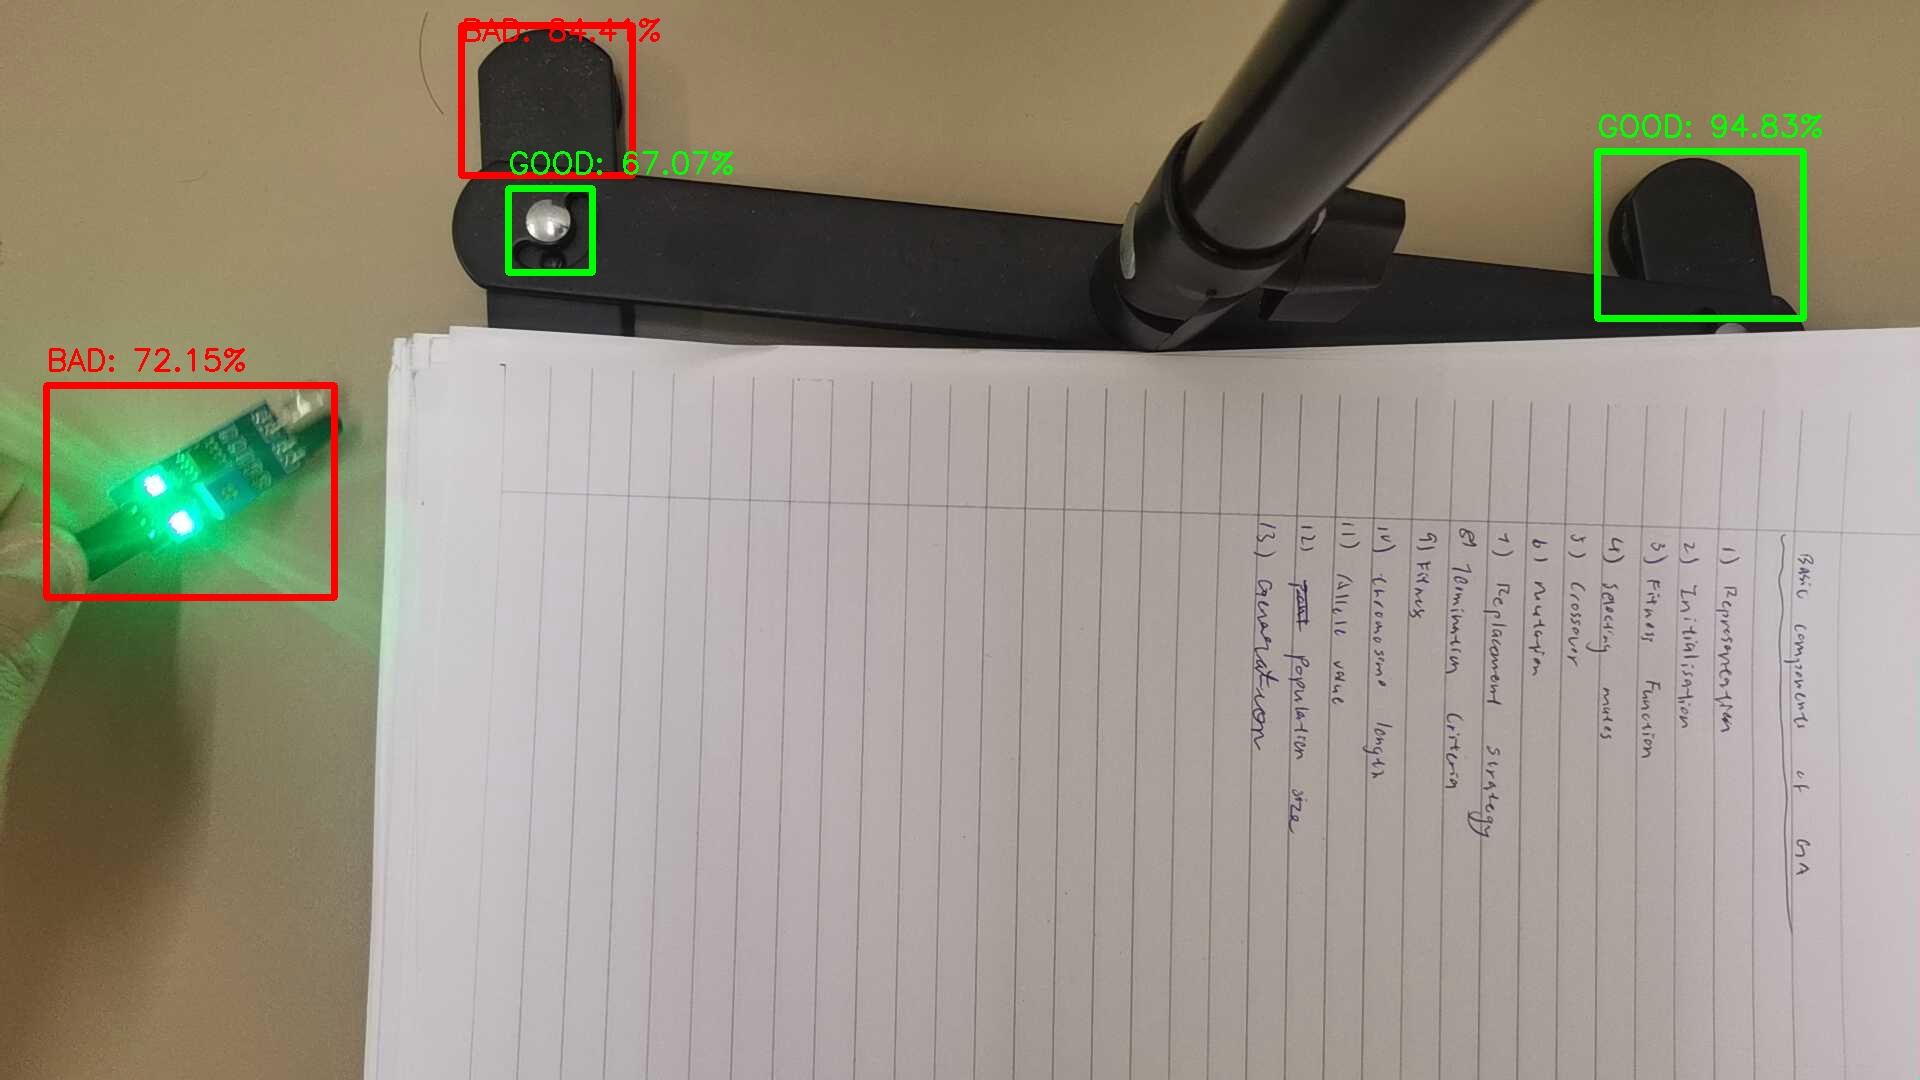 BAD: 84.41%
GOOD: 67.07%
GOOD: 94.83%
BAD: 72.15%
Basic components of GA
1) Representation
2) Initialisation
3) Fitness Function
4) Selecting mates
5) Crossover
6) Mutation
7) Replacement strategy
8) Termination Criteria
9) Fitness
10) Chromosome length
11) Allele value
12) Population size
13) Generation